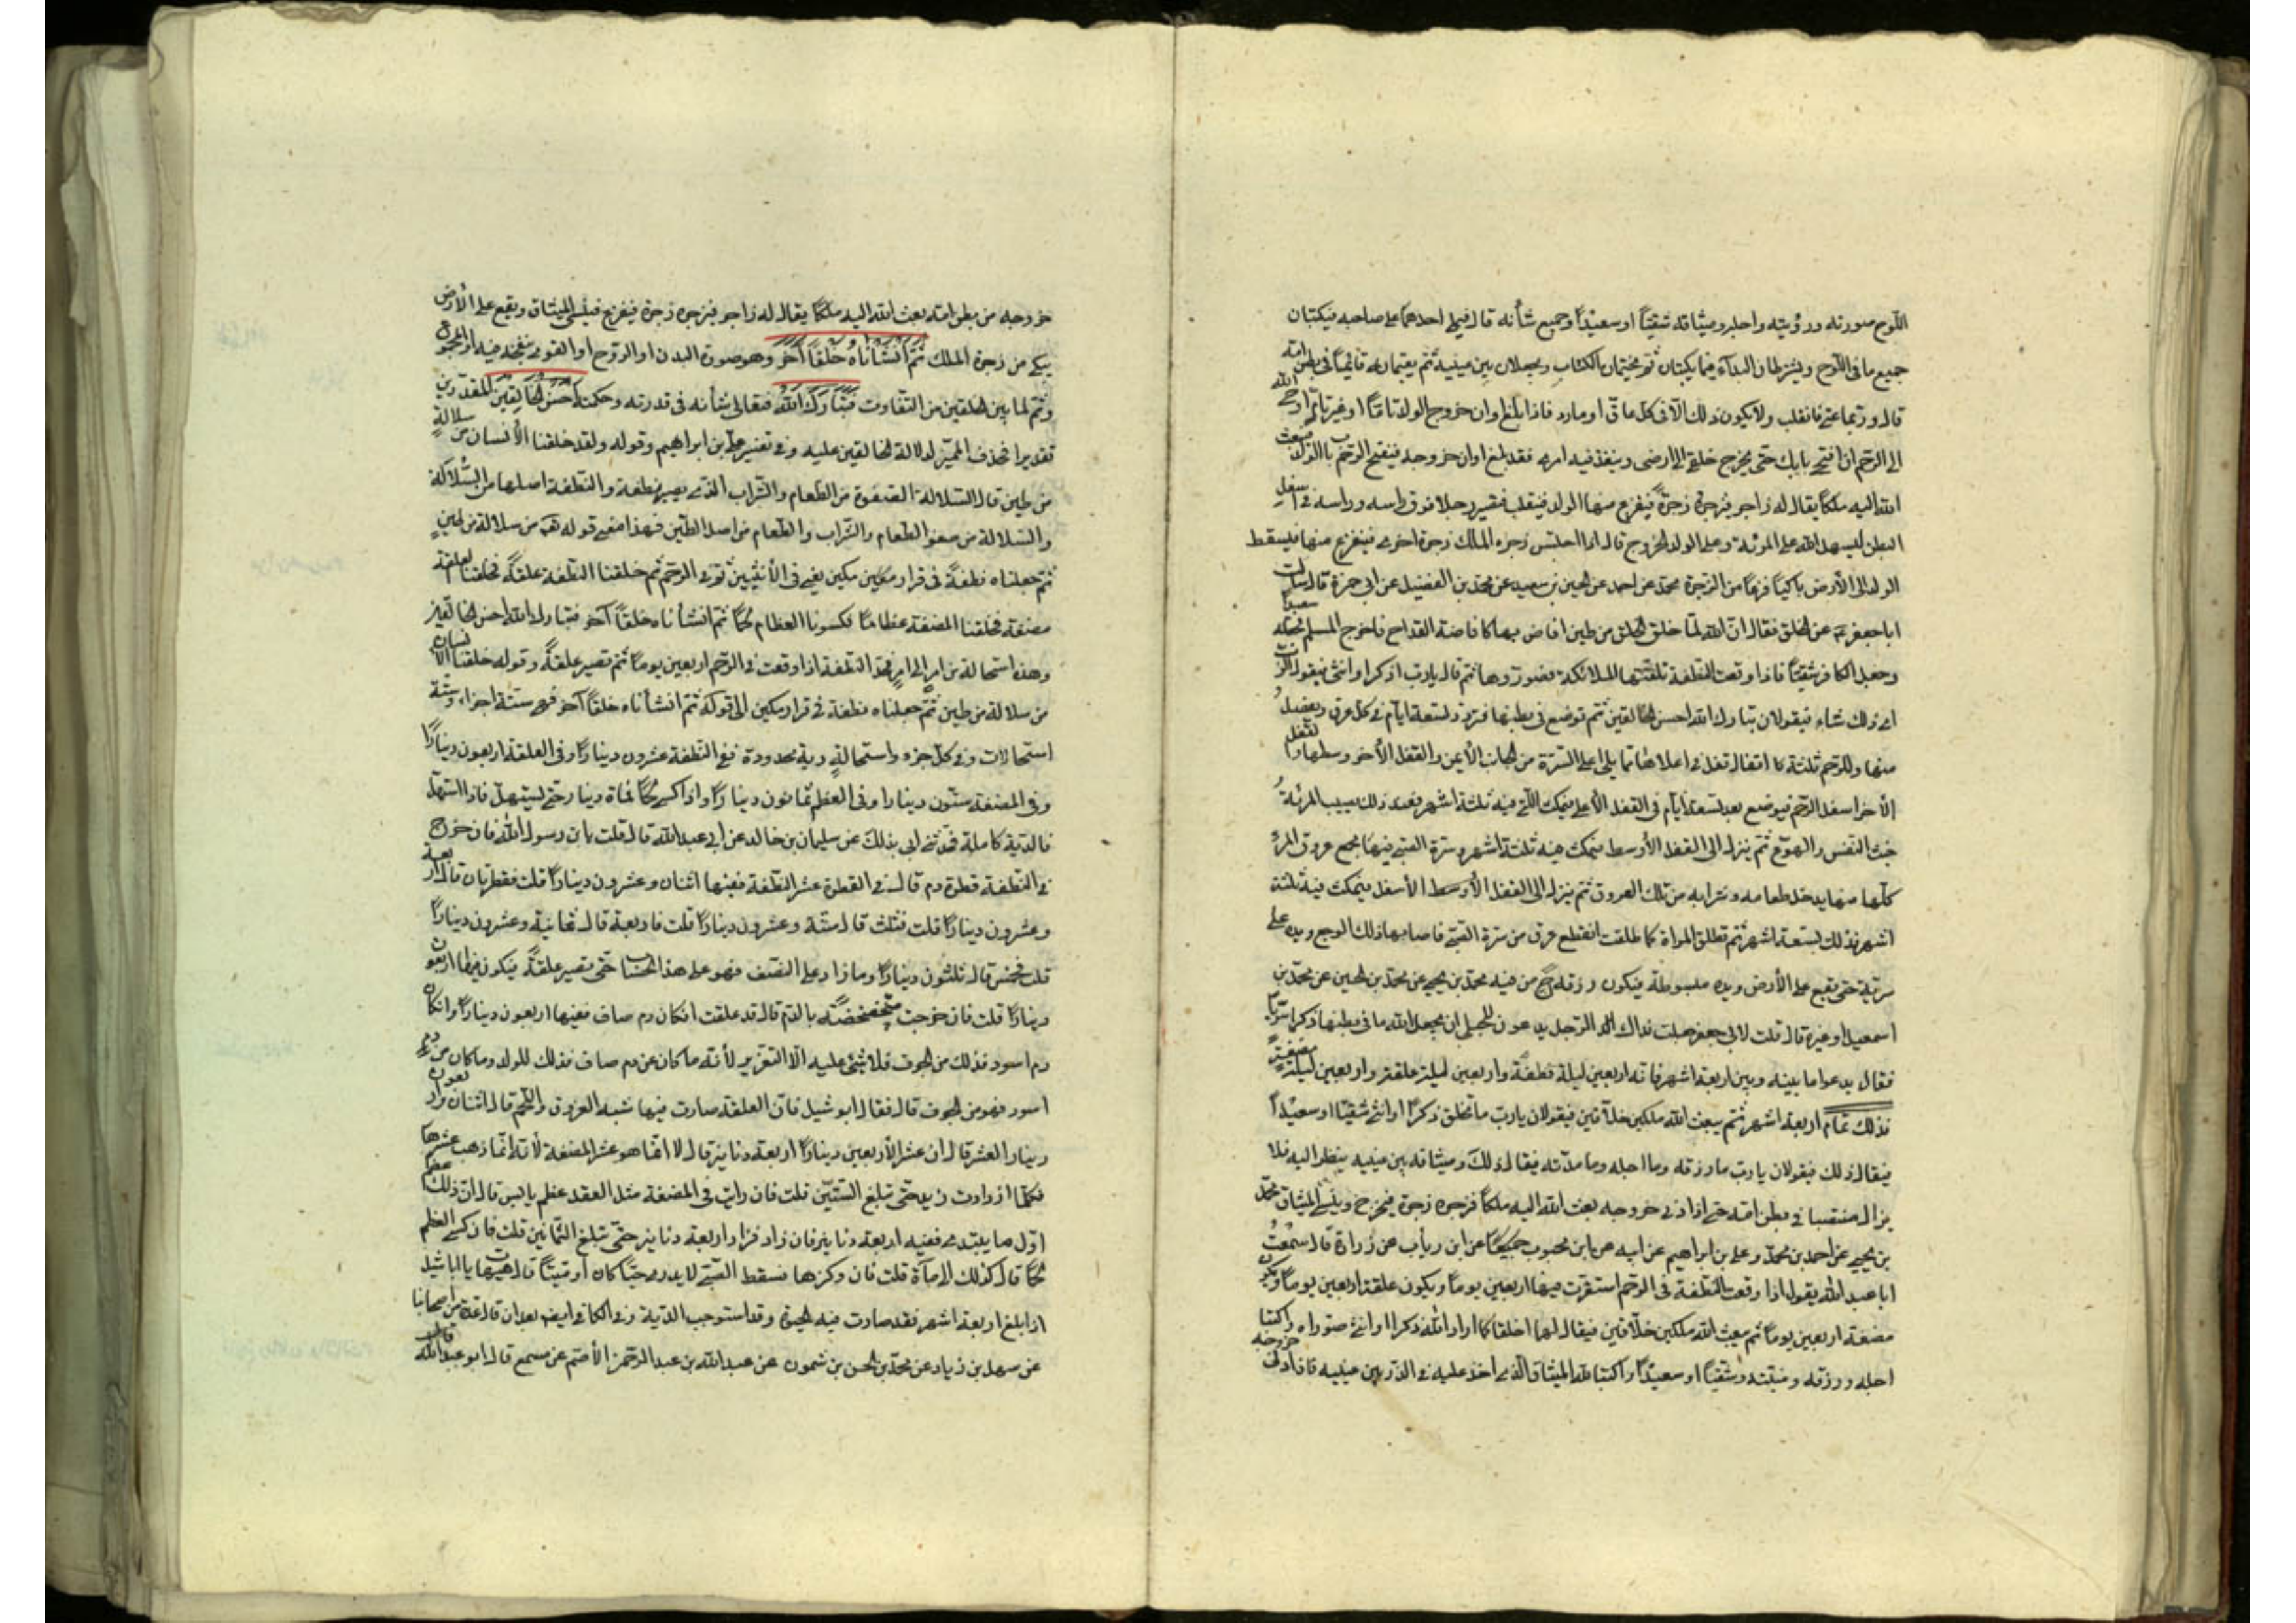 اللّوح صورته ورؤيته واجله وميثاقه شقيّاً او سعيداً وجميع شأنه قال فيملي احدهما على صاحبه فيكتبان
جميع ما في اللّوح ويشترطان البداء فيما يكتبان ثم يختمان الكتاب ويجعلان بين عينيه ثم يقيمانه قائماً في بطن امّه
قال وربّما عتى فانقلب ولا يكون ذلك الّا في كل عات او مارد فاذا بلغ اوان خروج الولد تامّاً او غير تام اوحى الله
الى الرّحم ان افتحي بابك حتى يخرج خلقي الى ارضى وينفذ فيه امرى فقد بلغ اوان خروجه فيفتح الرّحم باب الولد فيبعث
الله اليه ملكاً يقال له زاجر فيزجره زجرة فيفزع منها الولد فينقلب فتصير رجلاه فوق راسه وراسه في اسفل
البطن ليسهل الله على المرئة وعلى الولد الخروج قال اذا احتبس زجره الملك زجرة اخرى فيفزع منها فيسقط
الولد الى الارض باكياً فزعاً من الزّجرة محمّد عن احمد عن الحسين بن سعيد عن محمّد بن الفضيل عن ابي حمزة قال سالت
ابا جعفر ع عن الخلق فقال انّ الله لمّا خلق الخلق من طين افاض بها كافاضة القداح فاخرج المسلم فجعله سعيداً
وجعل الكافر شقيّاً فاذا وقعت النّطفة تلقّتها الملائكة فصوّروها ثم قال يا ربّ اذكرا او انثى فيقول الرّب
اى ذلك شاء فيقولان تبارك الله احسن الخالقين ثم توضع في بطنها فتردّد تسعة ايّام في كل عرق ومفصل
منها وللرّحم ثلثة اقفال قفل في اعلاها ممّا يلي اعلى السّرّة من الجانب الايمن والقفل الآخر وسطها والقفل
الآخر اسفل الرّحم فيوضع بعد تسعة ايّام في القفل الاعلى فيمكث فيه ثلثة اشهر فعند ذلك يصيب المرئة
خبث النّفس والتهوّع ثم ينزل الى القفل الاوسط فيمكث فيه ثلثة اشهر وسرّة الصّبي فيها مجمع عروق المرئة
كلّها منها يدخل طعامه وشرابه من تلك العروق ثم ينزل الى القفل الاسفل فيمكث فيه ثلثة
اشهر فذلك تسعة اشهر ثم تطلق المراة فكلما طلقت انقطع عرق من سرّة الصّبي فاصابها ذلك الوجع ويده على
سرّته حتى يقع على الارض ويده مبسوطة فيكون رزقه ح من فيه محمّد بن يحيى عن محمّد بن الحسين عن محمّد بن
اسمعيل او غيره قال قلت لابي جعفر جعلت فداك الرّجل يدعو للحبلى ان يجعل الله ما في بطنها ذكرا سويّاً
فقال يدعو ما بينه وبين اربعة اشهر فانّه اربعين ليلة نطفة واربعين ليلة علقة واربعين ليلة مضغة
فذلك تمام اربعة اشهر ثم يبعث الله ملكين خلّاقين فيقولان يا ربّ ما تخلق ذكرا او انثى شقيّا او سعيداً
فيقال ذلك فيقولان يا ربّ ما رزقه وما اجله وما مدّته فيقال ذلك وميثاقه بين عينيه ينظر اليه فلا
يزال منتصبا في بطن امّه حتى اذا دنى خروجه بعث الله اليه ملكا فزجره زجرة فيخرج وينسى الميثاق محمّد
بن يحيى عن احمد بن محمّد وعلي بن ابراهيم عن ابيه عن ابن محبوب جميعاً عن ابن رئاب عن زرارة قال سمعت
ابا عبد الله يقول اذا وقعت النّطفة في الرّحم استقرّت فيها اربعين يوماً ويكون علقة اربعين يوماً ويكون
مضغة اربعين يوماً ثم يبعث الله ملكين خلّاقين فيقال لهما اخلقا كما اراد الله ذكرا او انثى صوّراه واكتبا
اجله ورزقه ومنيّته وشقيّاً او سعيداً واكتبا لله الميثاق الّذى اخذ عليه في الذّر بين عينيه فاذا دنى خروجه
خروجه من بطن امّه بعث الله اليه ملكاً يقال له زاجر فيزجره زجرة فيفزع فينسى الميثاق ويقع على الارض
يبكي من زجرة الملك ثُمَّ أَنْشَأْنَاهُ خَلْقاً آخَرَ وهو صورة البدن او الرّوح او القوى بنفخه فيه او المجموع
وثم لما بين الخلقين من التّفاوت فَتَبَارَكَ اللهُ فتعالى شأنه في قدرته وحكمته أَحْسَنُ الْخَالِقِينَ المقدّرين
تقديرا فحذف المميّز لدلالة الخالقين عليه وفي تفسير علي بن ابراهيم وقوله ولقد خلقنا الانسان من سلالة
من طين قال السّلالة الصّفوة من الطّعام والشّراب الّذى يصير نطفة والنّطفة اصلها من السّلالة
والسّلالة من صفو الطّعام والشّراب والطّعام من اصل الطّين فهذا معنى قوله من سلالة من طين
ثمّ جعلناه نطفة في قرار مكين يعني في الانثيين ثم في الرّحم ثم خلقنا النّطفة علقة فخلقنا العلقة
مضغة فخلقنا المضغة عظاما فكسونا العظام لحما ثم انشأناه خلقاً آخر فتبارك الله احسن الخالقين
وهذه استحالة من امر الى امر فحدّ النّطفة اذا وقعت في الرّحم اربعين يوماً ثم تصير علقة وقوله خلقنا الانسان
من سلالة من طين ثم جعلناه نطفة في قرار مكين الى قوله ثم انشأناه خلقاً آخر فهى ستة اجزاء وستّة
استحالات وفي كل جزء واستحالة دية محدودة ففي النّطفة عشرون ديناراً وفي العلقة اربعون ديناراً
وفي المضغة ستّون دينارا وفي العظم ثمانون ديناراً واذا كسى لحماً فماة دينار حتى يستهلّ فاذا استهلّ
فالدّية كاملة فحدّثني ابي بذلك عن سليمان بن خالد عن ابي عبد الله قال قلت يا بن رسول الله فان خرج
في النّطفة قطرة دم قال في القطرة عشر النّطفة ففيها اثنان وعشرون ديناراً قلت فقطرتان قال اربعة
وعشرون ديناراً قلت فثلث قال ستّة وعشرون ديناراً قلت فاربعة قال ثمانية وعشرون ديناراً
قلت فخمس قال ثلثون ديناراً وما زاد على النّصف فهو على هذا الحساب حتى يصير علقة فيكون فيها اربعون
ديناراً قلت فان خرجت متخضخضة بالدّم قال قد علقت ان كان دم صاف ففيها اربعون ديناراً وان كان
دم اسود فذلك من الجوف فلا شئ عليه الّا التّعزير لانّه ما كان من دم صاف فذلك للولد وما كان من دم
اسود فهو من الجوف قال فقال ابو شبل فانّ العلقة صارت فيها شبه العروق واللّحم قال اثنان واربعون
دينارا العشر قال قلت ان عشر الاربعين ديناراً اربعة دنانير قال لا انّما هو عشر المضغة لانّه انّما ذهب عشرها
فكلّما ازدادت زيد حتى تبلغ السّتين قلت فان رايت في المضغة مثل العقد عظم يابس قال انّ ذلك عظم
اوّل ما يبتدى ففيه اربعة دنانير فان زاد فزاد اربعة دنانير حتى تبلغ الثّمانين قلت فان كسى العظم
لحماً قال كذلك الى ماة قلت فان وكزها فسقط الصّبي لا يدرى حيّا كان او ميّتا قال هيهات يا ابا شبل
اذا بلغ اربعة اشهر فقد صارت فيه الحيوة وقد استوجب الدّية وفي الكافي ايضا عدّة من اصحابنا
عن سهل بن زياد عن محمّد بن الحسن بن شمون عن عبد الله بن عبد الرّحمن الاصمّ عن مسمع قال ابو عبد الله قال